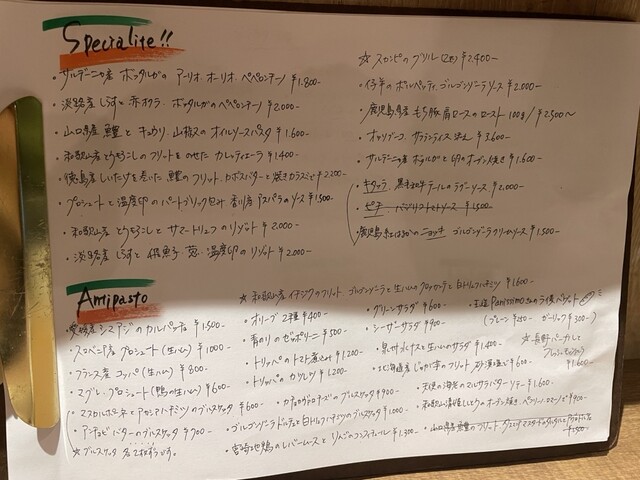 Specialite!!
・サルデーニャ産 ボッタルガの アーリオ.オーリオ.ペペロンチーノ ¥1.800-
・淡路産 しらすと 赤オクラ. ボッタルガのペペロンチーノ ¥2000-
・山口県産 鱧と キュウリ. 山椒の オイルソースパスタ ¥1.600-
・和歌山産 とうもろこしの フリットをのせた カレッティエーラ ¥1400-
・徳島産 しいたけを巻いた 鱧のフリット. カボスバターと焼きカラスミで ¥2.200-
・プロシュートと 温度卵の パートブリック包み 香川産 アスパラのソース ¥1500-
・和歌山産 とうもろこしと サマートリュフの リゾット ¥2.000-
・淡路産 しらすと 温度卵の リゾット ¥2.000-
☆ スカンピの グリル (2尾) ¥2.400-
・仔羊の ポルペッティ. ゴルゴンゾーラソース ¥2.000-
・鹿児島県産 もち豚 肩ロースのロースト 100g/¥2,500~
・オッソブーコ. サフランライス 添え ¥3.600-
・サルデーニャ産 ボッタルガと 卵のオーブン焼き ¥1.600-
・キタッラ 黒毛和牛テールのラグーソース ¥2.000-
・ピチ ¥1500-
ニョッキ ゴルゴンゾーラクリームソース ¥1.500-
Antipasto
☆ 和歌山産 イチジクのフリット. ゴルゴンゾーラと 生ハムの クロッカンテと 白トリュフハチミツ ¥1600-
・愛媛産 シマアジの カルパッチョ ¥1,500-
・スロベニア産 プロシュート (生ハム) ¥1000-
・フランス産 コッパ (生ハム) ¥800-
・マグレ.プロシュート (鴨の生ハム) ¥600-
・マスカルポーネと アカシアハチミツの ブルスケッタ ¥600-
・アンチョビバターの ブルスケッタ ¥700-
☆ ブルスケッタ 各2枚ずつです。
・オリーブ 2種 ¥400-
・青のりの ゼッポリーニ ¥500-
・トリッパの トマト煮込み ¥1.200-
・トリッパの カツレツ ¥1.200-
・ブルスケッタ ¥900-
・ゴルゴンゾーラドルチェと 白トリュフハチミツの ブルスケッタ ¥1000-
・宮崎地鶏の レバームースと リンゴの コンフィチュール ¥1.300-
・グリーンサラダ ¥600-
・シーザーサラダ ¥900-
・泉州水ナスと 生ハムのサラダ ¥1.400-
・北海道産 じゃがいものフリット ¥600-
・天使の海老の マルサラバターソテー ¥1.600-
・和歌山 とうもろこしの オーブン焼き. ペコリーノロマーノ ¥900-
・山口県産 鱧の フリット ¥1.500-
Panissimo バゲット
(プレーン ¥250- ガーリック ¥300-)
¥1.600-